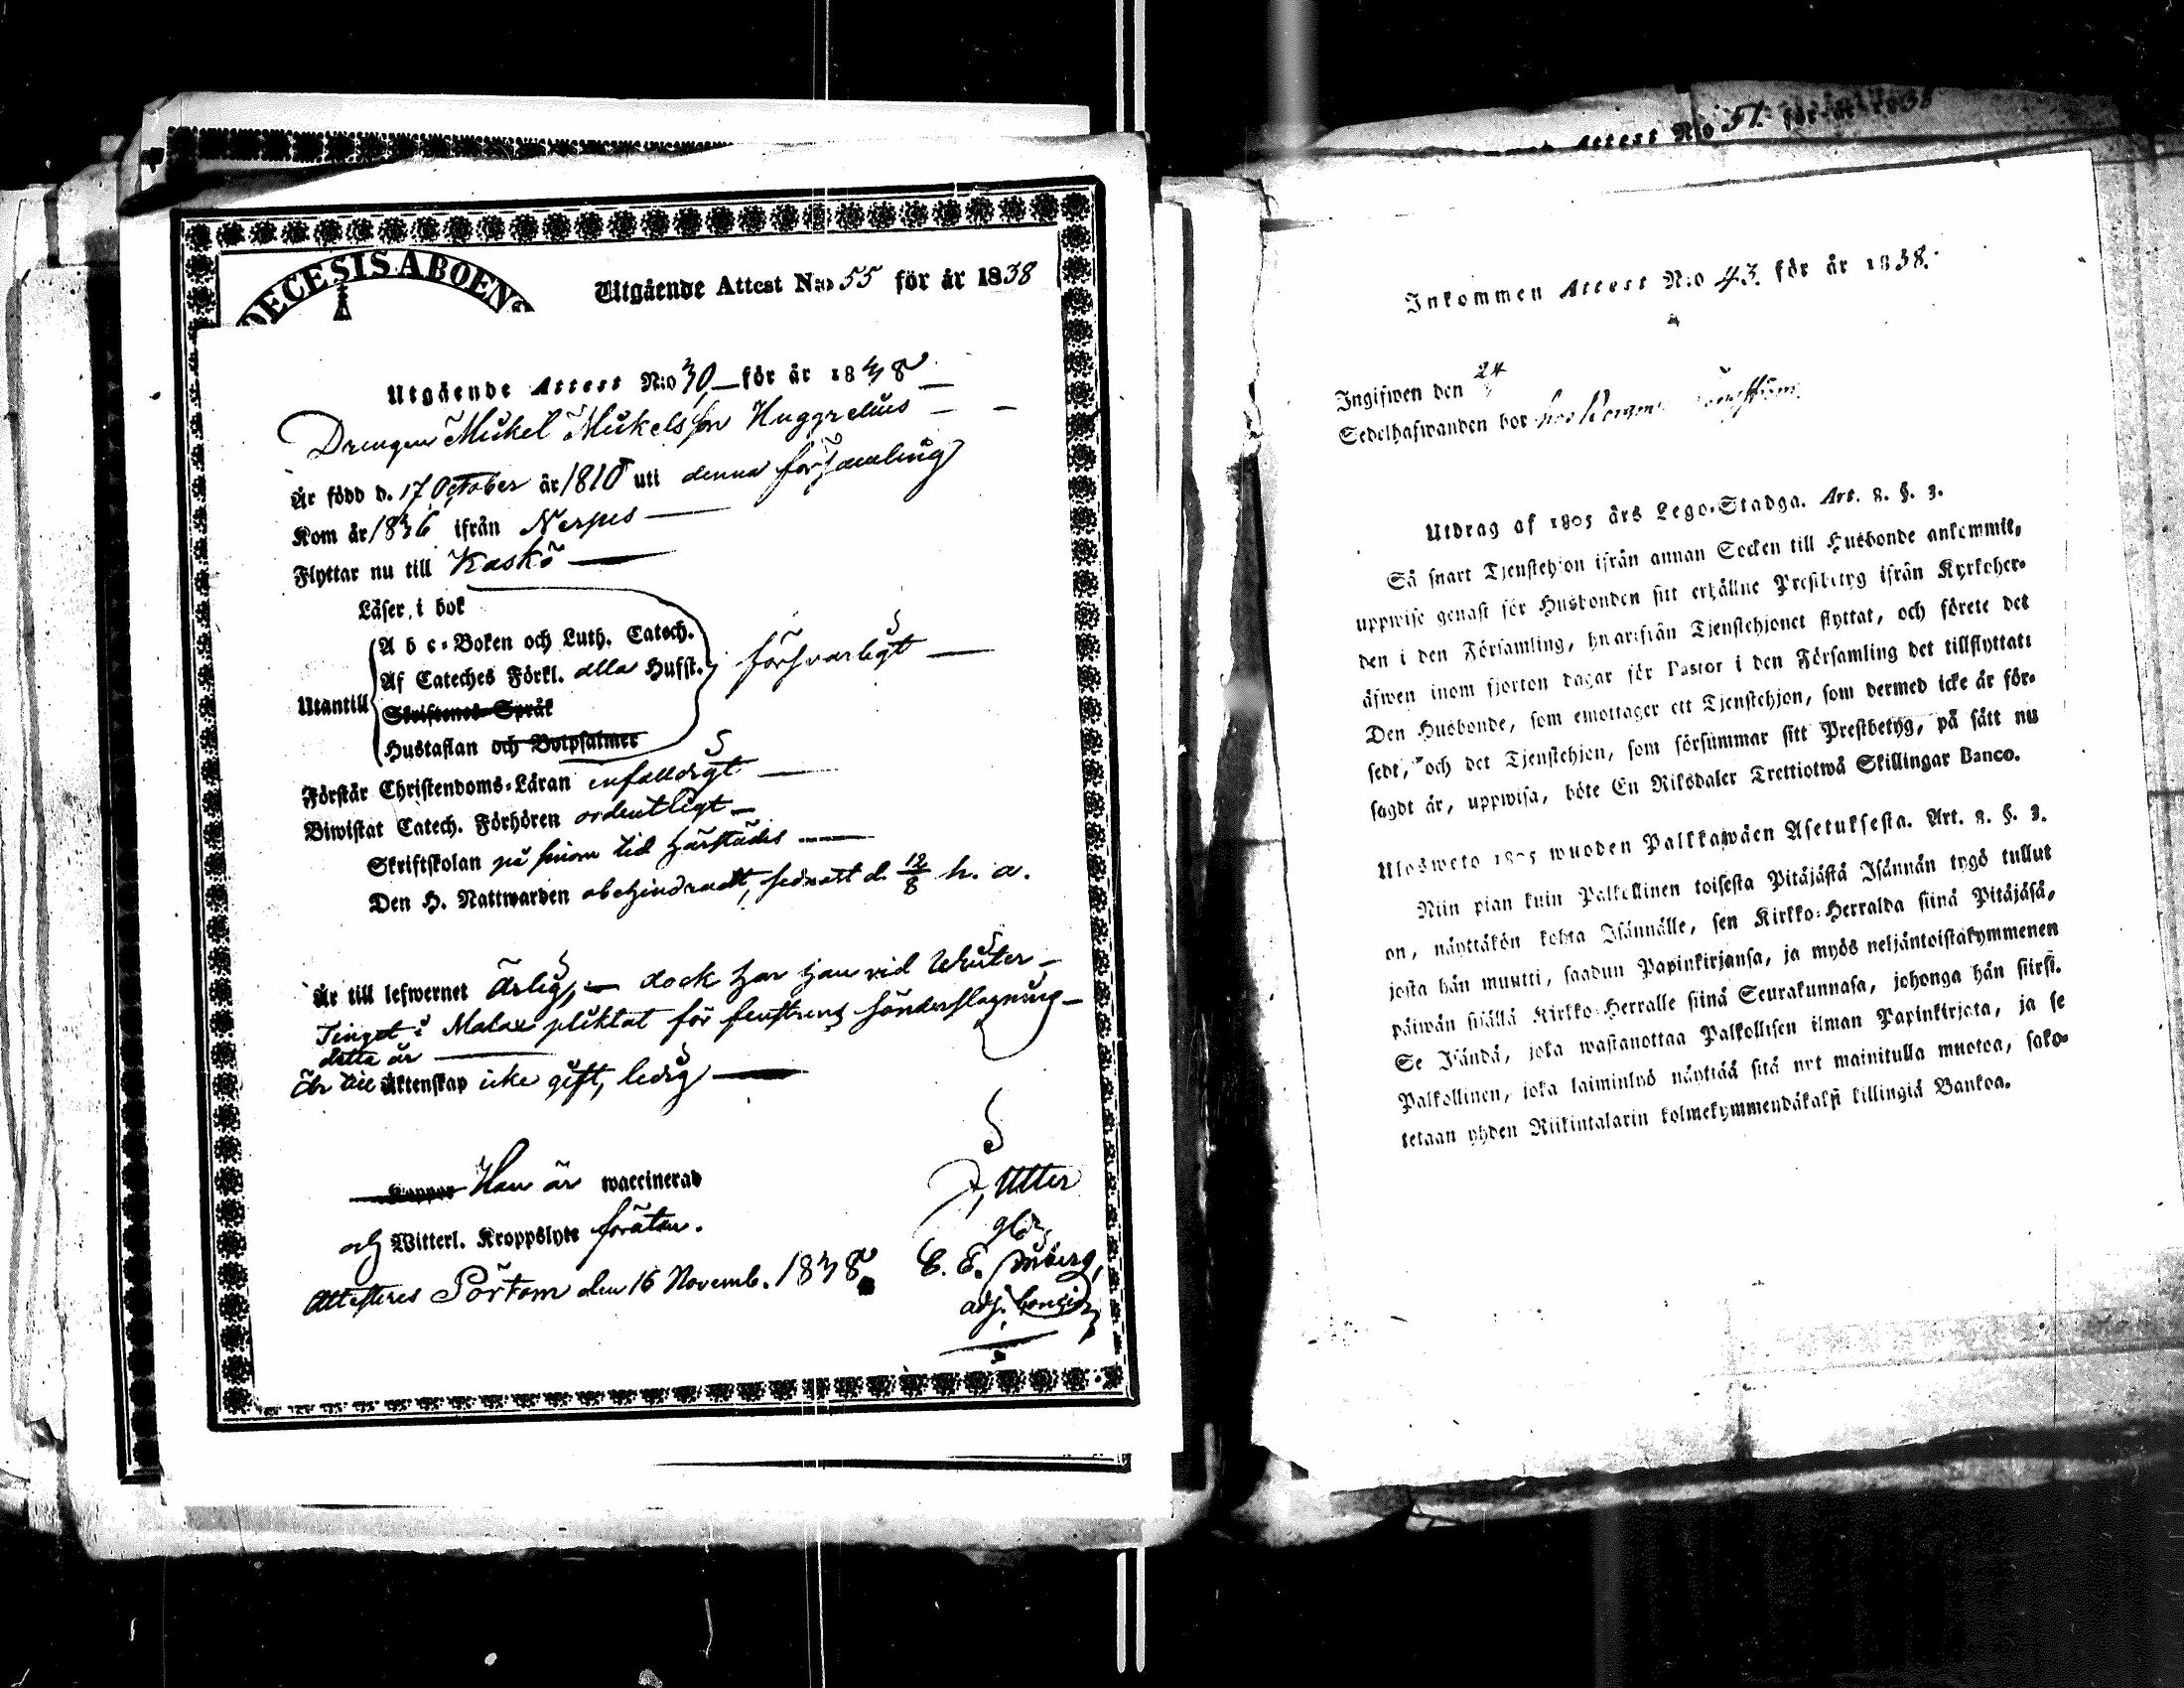 DECESIS ABOENS
Utgående Attest N:o 55 för år 1838
Utgående Attest N:o 30 för år 1838
Drengen Mickel Mickelsson Huggrelius
Är född d. 17 October år 1810 uti denna församling
Kom år 1836 ifrån Nerpes
Flyttar nu till Kaskö
Läser i bok
A b c-Boken och Luth. Catech.
Af Cateches Förkl. alla Hufst. försvarligt
Utantill
Skriftenes-Språk
Hustaflan och Botpsalmer
Förstår Christendoms-Läran enfaldigt
Biwistat Catech. Förhören ordentligt
Skriftskolan på sinom tid härstädes
Den H. Nattwarden obehindradt, sednast d. 12/8 h. a.
Är till lefwernet Ärlig, dock har han vid Winter
Tinget i Malax pliktat för fenstrens sönderslagning
detta år
Är till Äktenskap icke gift, ledig
Koppor Han är waccinerad
och Witterl. Kroppslyte förutan.
Attesteras Pörtom den 16 Novemb. 1838.
Utter
C. E.
adj.
Attest N:o 51. för år 1838
Inkommen Attest N:o 43. för år 1838.
Ingifwen den 24
Sedelhafwanden bor hos
Utdrag af 1805 års Lego-Stadga. Art. 8. §. 3.
Så snart Tjenstehjon ifrån annan Socken till Husbonde ankommit,
uppwise genast för Husbonden sitt erhållne Prestbetyg ifrån Kyrkoher-
den i den Församling, hwarifrån Tjenstehjonet flyttat, och förete det
äfwen inom fjorton dagar för Pastor i den Församling det tillflyttat:
Den Husbonde, som emottager ett Tjenstehjon, som dermed icke är för-
sedt, och det Tjenstehjon, som försummar sitt Prestbetyg, på sätt nu
sagdt är, uppwisa, böte En Riksdaler Trettiotwå Skillingar Banco.
Ulosweto 1805 wuoden Palkkawäen Asetuksesta. Art. 8. §. 3.
Niin pian kuin Palkollinen toisesta Pitäjästä Isännän tygö tullut
on, näyttäkön kohta Isännälle, sen Kirkko-Herralda siinä Pitäjäsä,
josta hän muutti, saadun Papinkirjansa, ja myös neljäntoistakymmenen
päiwän sisällä Kirkko-Herralle siinä Seurakunnasa, johonga hän siirsi.
Se Isändä, joka wastanottaa Palkollisen ilman Papinkirjata, ja se
Palkollinen, joka laiminlyö näyttää sitä nyt mainitulla muotoa, sako-
tetaan yhden Riikintalarin kolmekymmendäkaksi killingiä Bankoa.